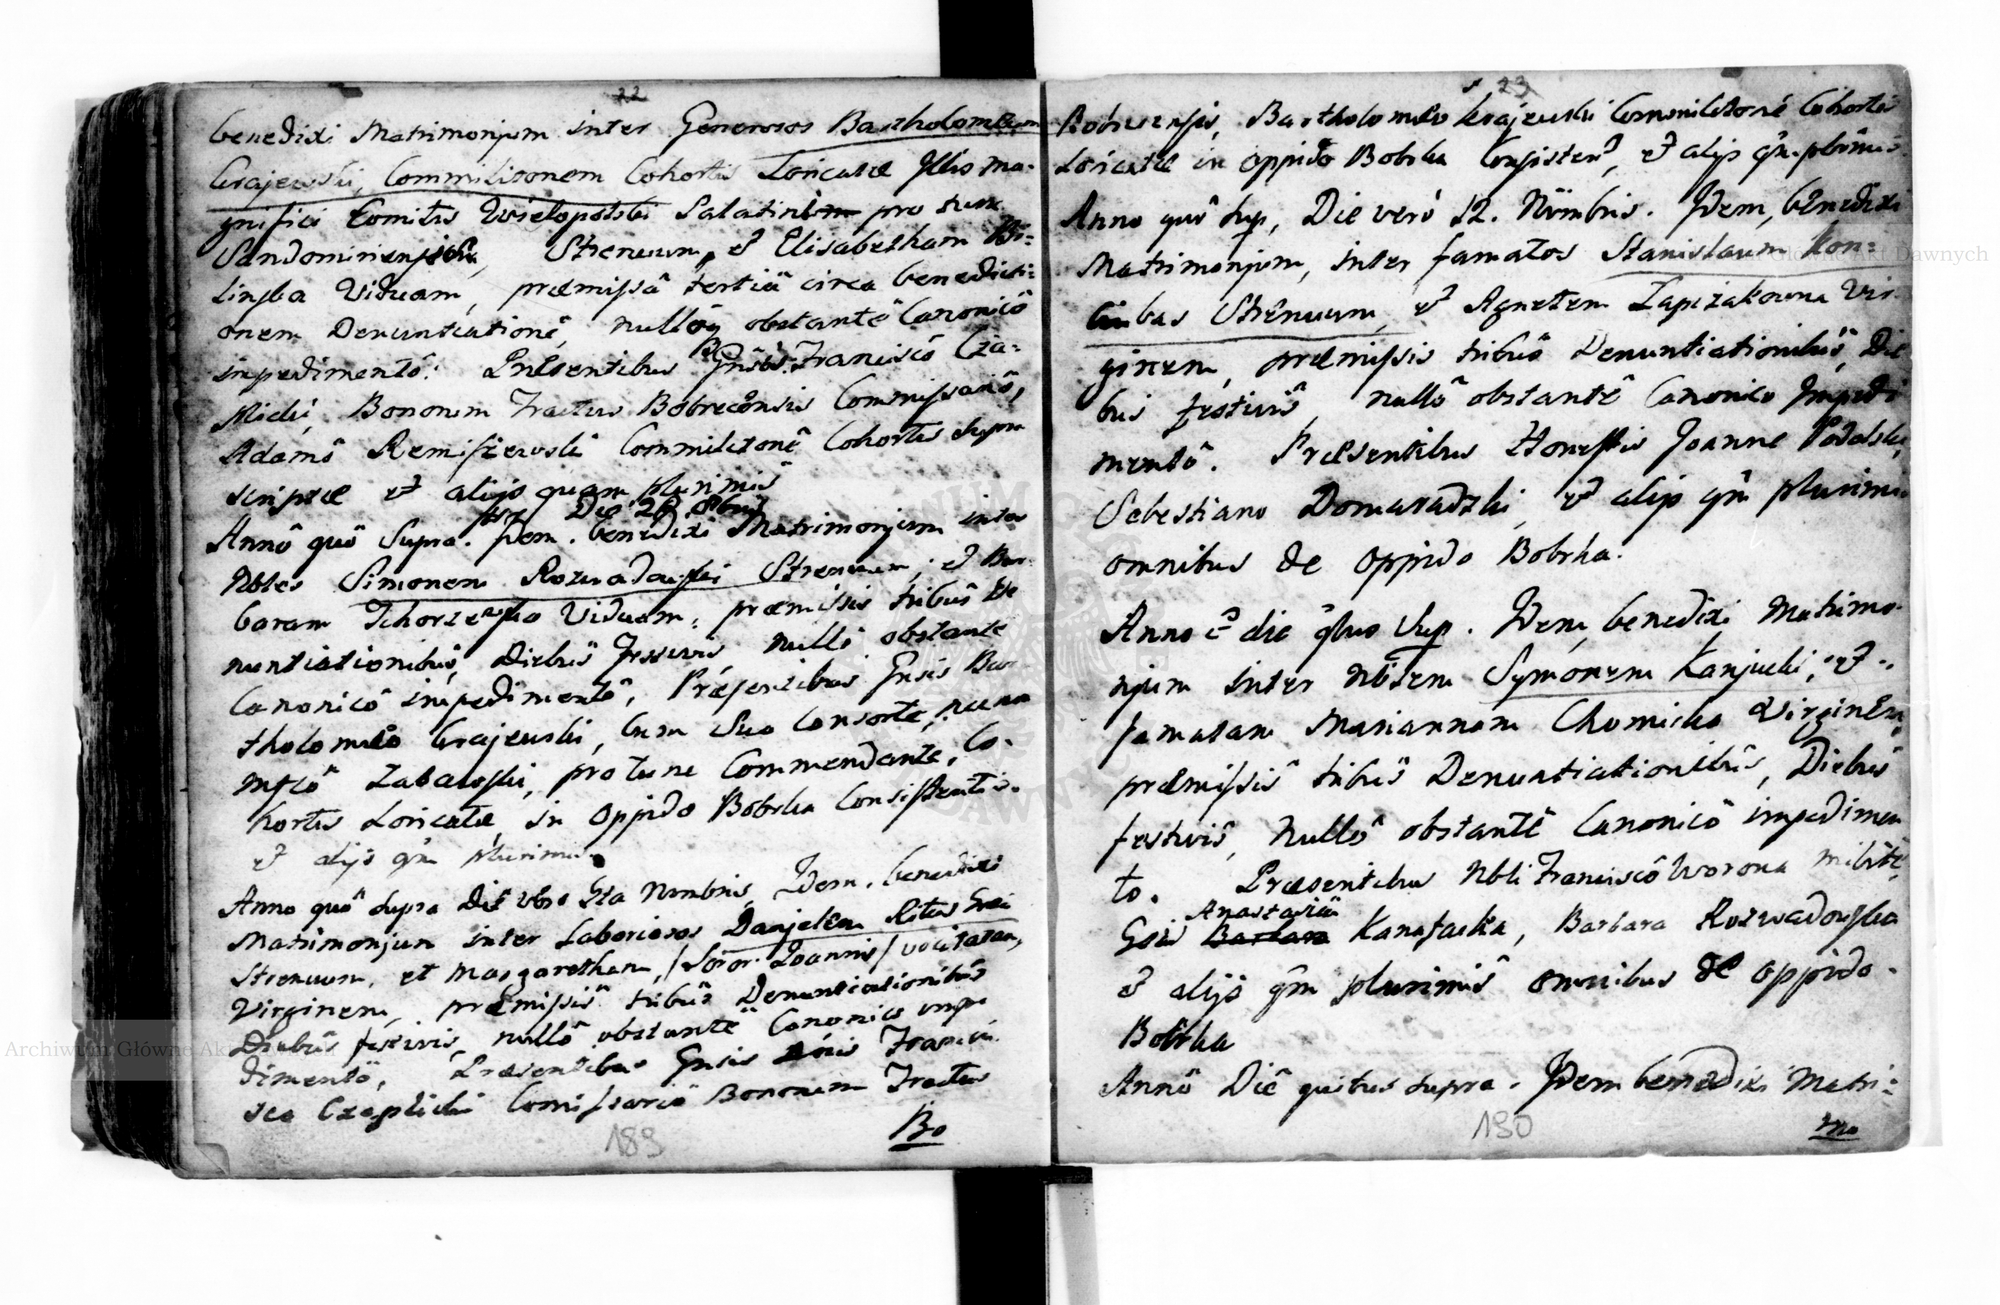 22
benedixi Matrimonium inter Generosos Bartholomeum
Grajewski, Commilitonem Cohortis Loricatæ Illis Ma-
gnifici Comitis Wielopolski Palatini pro tunc
Sandomiriensis, Strenuum, et Elisabetham Bi=
linska Viduam, præmissâ tertiâ circa benedicti-
onem Denuntiationê, nullóq obstantê Canonicô
impedimentô. Præsentibus Gnsis: Franciscô Cza-
plicki, Bononum Tractus Bobrecensis Commissariô,
Adamô Remiszewski Commilitonê Cohortis supra
scriptæ et alijs quam plurimis
Die 28 8bris
Annô quô Supra. Idem. benedixi Matrimonjum inter
Nbles Simonem Rozwadowski Strenuum, et Bar-
baram Tchorzewska Viduam, præmissis tribus De
nuntiationibus, Diebus Festivis, nullô obstante
Canonicô impedimentô, Præsentibus Gnsis Bar-
tholomæo Grajewski, Cum Suo Consorte, nec non
Mfcô Zabawski, pro tunc Commendante, Co-
hortis Loricatæ, in Oppido Bobrka Consistentis.
et alijs qm plurimis
Anno quô supra Diê vero 6ta Nvmbris, Idem. benedixi
Matrimonjum inter Laboriosos Danjelem Ritus Græci
Strenuum, et Margaretham, /Soror Joannis/ vocitatam,
Virginem, præmissis tribus Denuntiationibus
Diebus festivis, nullô obstantê Canonico impe
dimentô, Præsentibus Gnsis Dnis Francis
sco Czaplicki Comissariô Bononum Tractus
Bo
189
23
Bobrecensis, Bartholomæo Grajewski Commilitonê Cohortis
Loricatæ in oppido Bobrka Consisten, et alijs qm plurimis
Anno quô sup, Die verò 12. Nvmbris. Idem, benedixi
Matrimonjum, inter famatos Stanislaum Kon=
bas Strênuum, et Agnetem Lapizakowna Vir-
ginem, præmissis tribus Denuntiationibus, Die
bus festivis, nullô obstantê Canonico Impedi
mentô. Præsentibus Honestis Joanne Podolski,
Sebestiano Domaradzki, et alijs qm plurimis
omnibus de oppido Bobrka.
Anno et die quo Sup. Idem, benedixi Matrimo-
njum inter Nblem Symonem Kanjucki, et
famatam Mariannam Chomicka Virginem,
præmissis tribus Denuntiationibus, Diebus
festivis, Nullô obstantê Canonicô impedimen
to. Præsentibus Nbli Franciscô Worona milite,
Anastasiâ
Gsis Barbara Kanafacka, Barbara Rozwadowska
et alijs qm plurimis omnibus de oppido
Bobrka
Annô Diê quibus supra. Idem benedixi Matri=
mo
190
Archiwum Główne Akt Dawnych